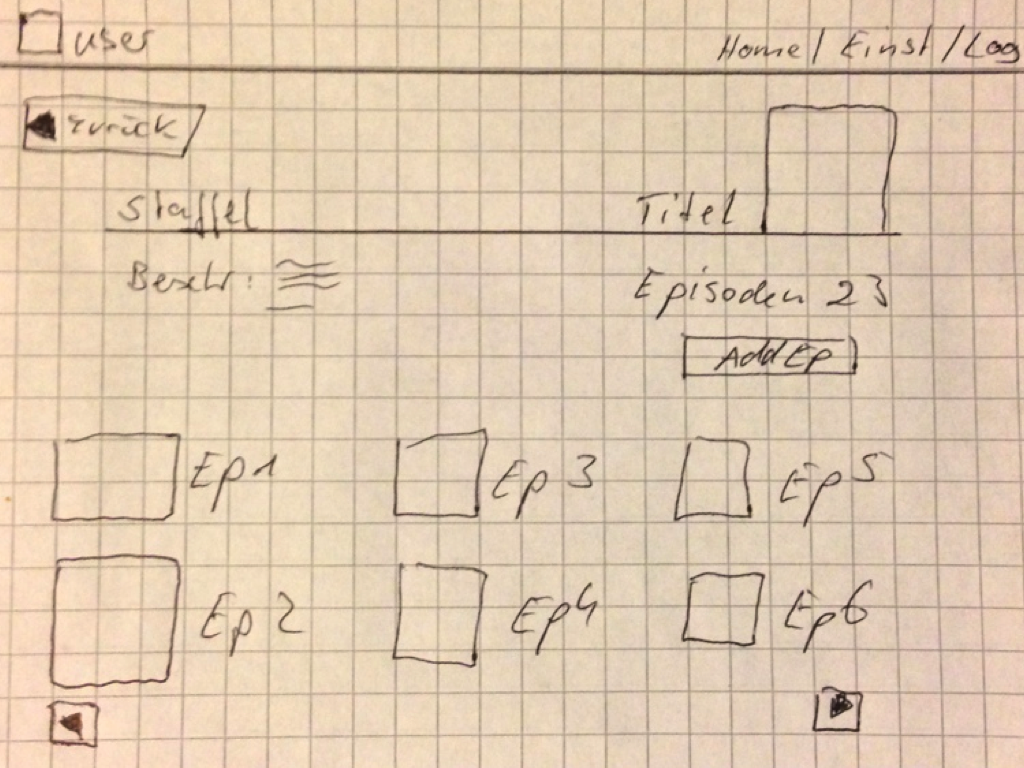 user
Home / Einst / Log
zurück
Staffel
Titel
Beschr:
Episoden 23
Add Ep
Ep 1
Ep 3
Ep 5
Ep 2
Ep 4
Ep 6